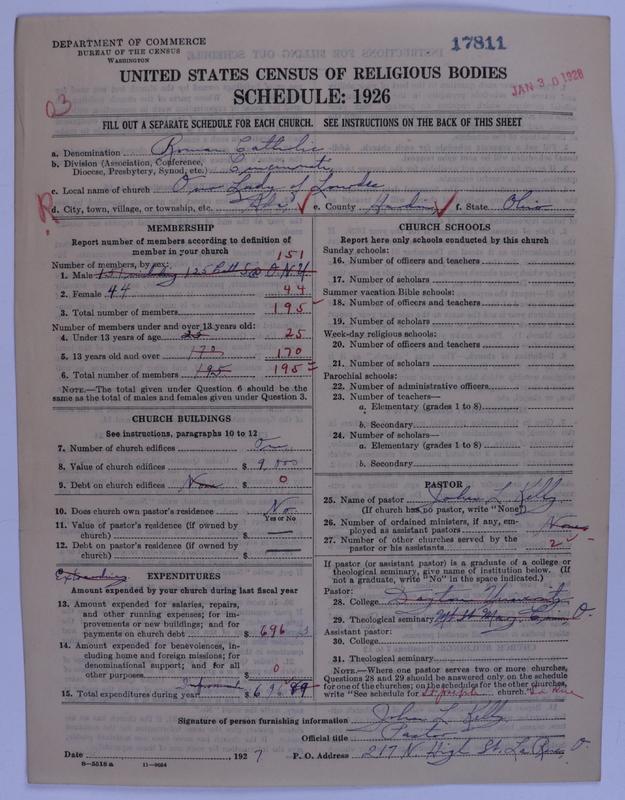 DEPARTMENT OF COMMERCE
BUREAU OF THE CENSUS
WASHINGTON
17811
JAN 30 1928
UNITED STATES CENSUS OF RELIGIOUS BODIES
SCHEDULE: 1926
03
FILL OUT A SEPARATE SCHEDULE FOR EACH CHURCH. SEE INSTRUCTIONS ON THE BACK OF THIS SHEET
a. Denomination Roman Catholic
b. Division (Association, Conference, Diocese, Presbytery, Synod, etc.) Cincinnati
c. Local name of church Our Lady of Lourdes
R
d. City, town, village, or township, etc. Ada e. County Hardin f. State Ohio
MEMBERSHIP
Report number of members according to definition of
member in your church
Number of members, by sex:
151
1. Male 125 O.N.U.
2. Female 44 44
3. Total number of members 195
Number of members under and over 13 years old:
4. Under 13 years of age 25 25
5. 13 years old and over 170 170
6. Total number of members 195 195
NOTE.—The total given under Question 6 should be the
same as the total of males and females given under Question 3.
CHURCH BUILDINGS
See instructions, paragraphs 10 to 12
7. Number of church edifices One
8. Value of church edifices $ 9,000
9. Debt on church edifices None $ 0
10. Does church own pastor's residence No
Yes or No
11. Value of pastor's residence (if owned by
church) $ —
12. Debt on pastor's residence (if owned by
church) $ —
EXPENDITURES
Amount expended by your church during last fiscal year
13. Amount expended for salaries, repairs,
and other running expenses; for im-
provements or new buildings; and for
payments on church debt $ 696
14. Amount expended for benevolences, in-
cluding home and foreign missions; for
denominational support; and for all
other purposes 0
15. Total expenditures during year $ 696 89
CHURCH SCHOOLS
Report here only schools conducted by this church
Sunday schools:
16. Number of officers and teachers
17. Number of scholars
Summer vacation Bible schools:
18. Number of officers and teachers
19. Number of scholars
Week-day religious schools:
20. Number of officers and teachers
21. Number of scholars
Parochial schools:
22. Number of administrative officers
23. Number of teachers—
a. Elementary (grades 1 to 8)
b. Secondary
24. Number of scholars—
a. Elementary (grades 1 to 8)
b. Secondary
PASTOR
25. Name of pastor John L Kelly
(If church has no pastor, write "None")
26. Number of ordained ministers, if any, em-
ployed as assistant pastors None
27. Number of other churches served by the
pastor or his assistants 2
If pastor (or assistant pastor) is a graduate of a college or
theological seminary, give name of institution below. (If
not a graduate, write "No" in the space indicated.)
Pastor:
28. College Dayton University
29. Theological seminary Mt St Mary O.
Assistant pastor:
30. College
31. Theological seminary
NOTE.—Where one pastor serves two or more churches,
Questions 28 and 29 should be answered only on the schedule
for one of the churches; on the schedules for the other churches,
write "See schedule for St. Joseph church." La Rue
Signature of person furnishing information John L Kelly
Official title Pastor
Date , 1927 P. O. Address 217 N. High St. La Rue O.
8—5518 a 11—9084